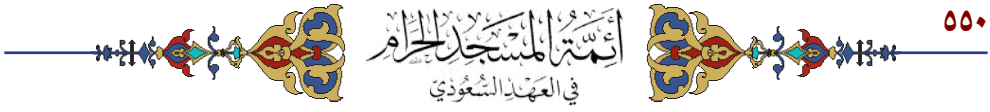 ٥٥٠
أئمة المسجد الحرام
في العهد السعودي